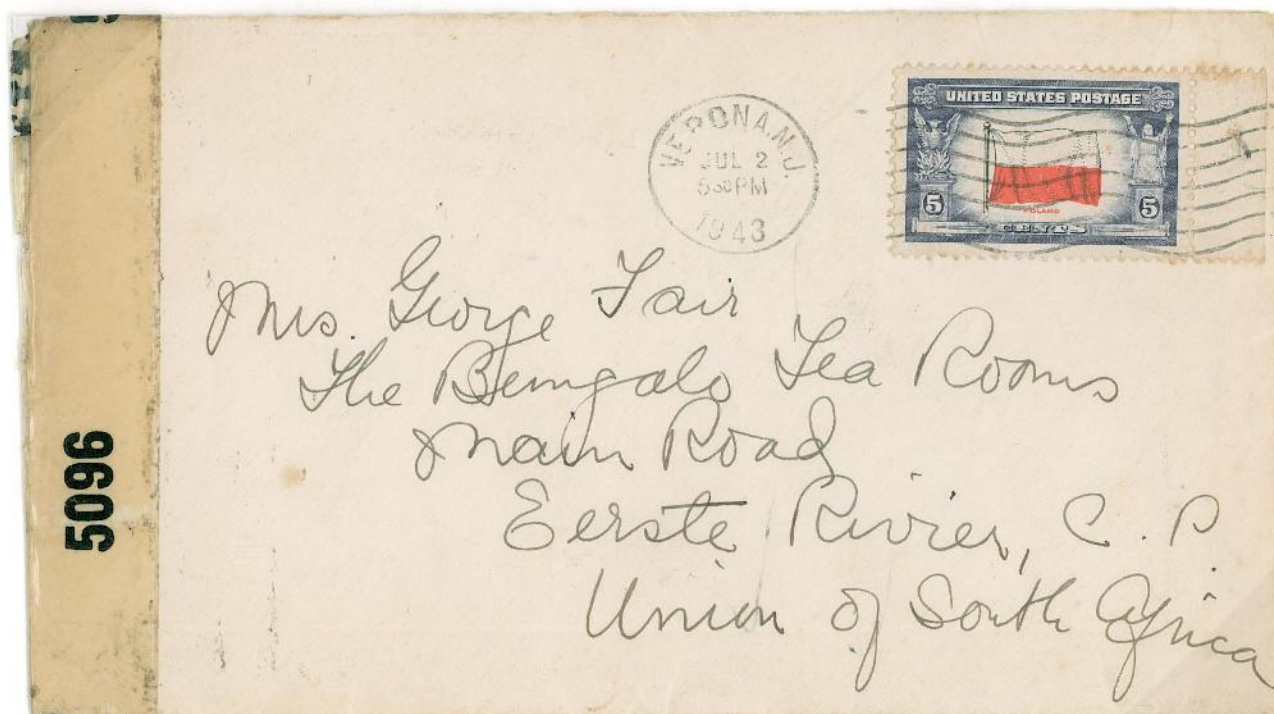 5096
VERONA, N.J.
JUL 2
5 30 PM
1943
UNITED STATES POSTAGE
5 5
POLAND
CENTS
Mrs. George Fair
The Bungalo Tea Rooms
Main Road
Eerste Rivier, C. P.
Union of South Africa